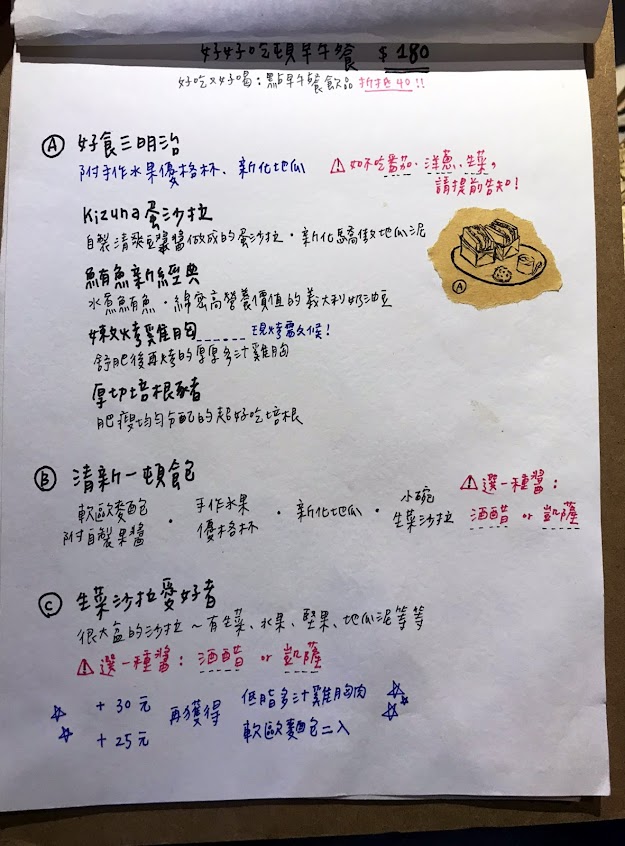 好好吃頓早午餐 $180
好吃又好喝:點早午餐飲品 折抵40!!
Ⓐ 好食三明治
附手作水果優格杯、新化地瓜
⚠ 如不吃番茄、洋蔥、生菜,
請提前告知!
Kizuna蛋沙拉
自製清爽豆漿醬做成的蛋沙拉・新化驕傲地瓜泥
鮪魚新經典
水煮鮪魚・綿密高營養價值的義大利奶油豆
嫩烤雞胸------現烤需久候!
舒肥後再烤的厚厚多汁雞胸
厚切培根豬
肥瘦均勻分配的超好吃培根
Ⓐ
Ⓑ 清新一頓飽
軟歐麵包
附自製果醬
・
手作水果
優格杯
・新化地瓜・
小碗
生菜沙拉
⚠ 選一種醬:
酒醋 or 凱薩
Ⓒ 生菜沙拉愛好者
很大盆的沙拉~有生菜、水果、堅果、地瓜泥等等
⚠ 選一種醬:酒醋 or 凱薩
+30元 再獲得 低脂多汁雞胸肉
+25元 軟歐麵包二入